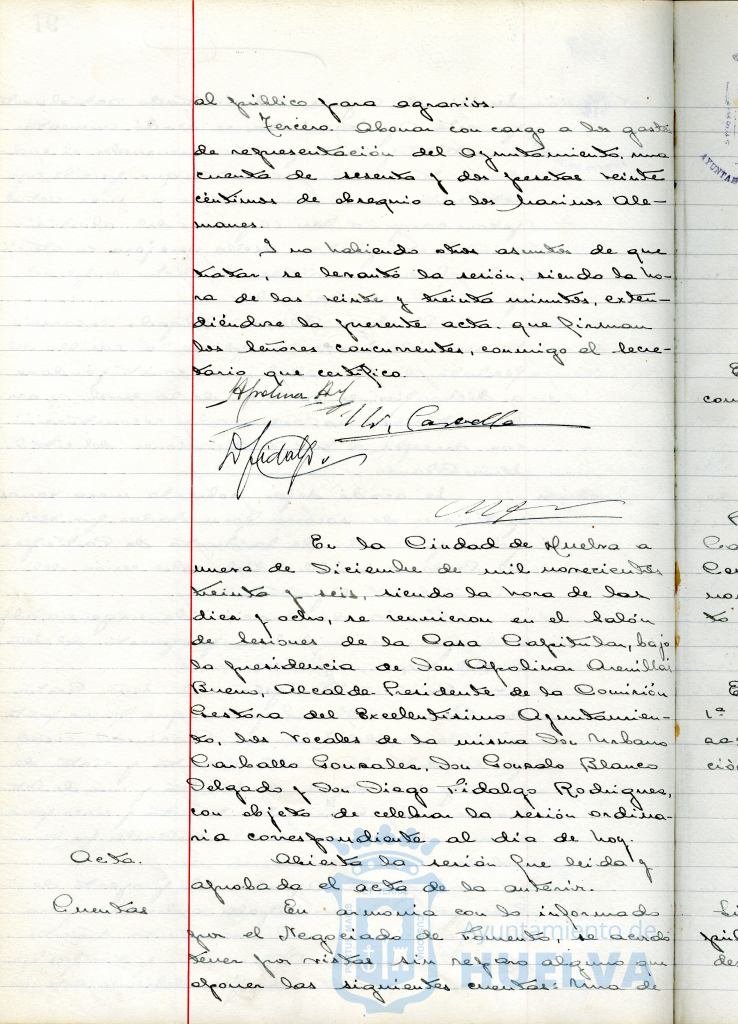 al público para agravios.
Tercero. Abonar con cargo a los gastos
de representación del Ayuntamiento, una
cuenta de sesenta y dos pesetas veinte
céntimos de obsequio a los Marinos Ale-
manes.
Y no habiendo otros asuntos de que
tratar, se levantó la sesión, siendo la ho-
ra de las veinte y treinta minutos, exten-
diéndose la presente acta que firman
los señores concurrentes, conmigo el Secre-
tario que certifico.
U. Carballo
D. Fidalgo
En la Ciudad de Huelva a
nueve de Diciembre de mil novecientos
treinta y seis, siendo la hora de las
diez y ocho, se reunieron en el Salón
de Sesiones de la Casa Capitular, bajo
la presidencia de Don Apolinar Arenillas
Bueno, Alcalde-Presidente de la Comisión
Gestora del Excelentísimo Ayuntamien-
to, los Vocales de la misma Don Urbano
Carballo Gonzalez, Don Gonzalo Blanco
Delgado y Don Diego Fidalgo Rodriguez,
con objeto de celebrar la sesión ordina-
ria correspondiente al día de hoy.
Acta. Abierta la sesión fue leida y
aprobada el acta de la anterior.
Cuentas En armonia con lo informado
por el Negociado de Fomento, se acordó
tener por vistas sin reparo alguno que
oponer las siguientes cuentas: Una de
Ayuntamiento de
HUELVA